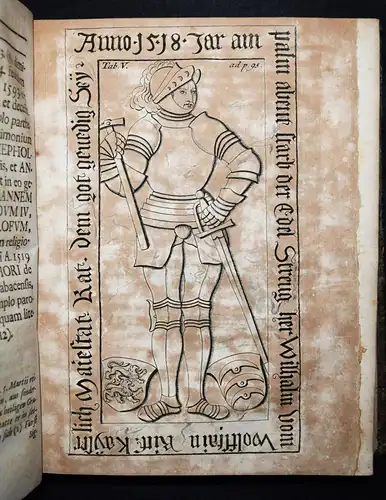 Anno·1518·Jar am
palm abent starb der Edel Streng her Wilhalm vom
Wolffstain Rit: Kayser
lich Maiestat Rat· dem got genedig Sey·
Tab. V.
ad p. 95.
1593
et
plo parth
rimonium
EPHOL-
is, et AN.
t in eo ge-
ANNEM
DVM IV,
LOFVM,
n religio-
i A. 1519
IORI de
abacensis,
mplo paro
quam lite-
12).
5. Martii
aus
heiligen